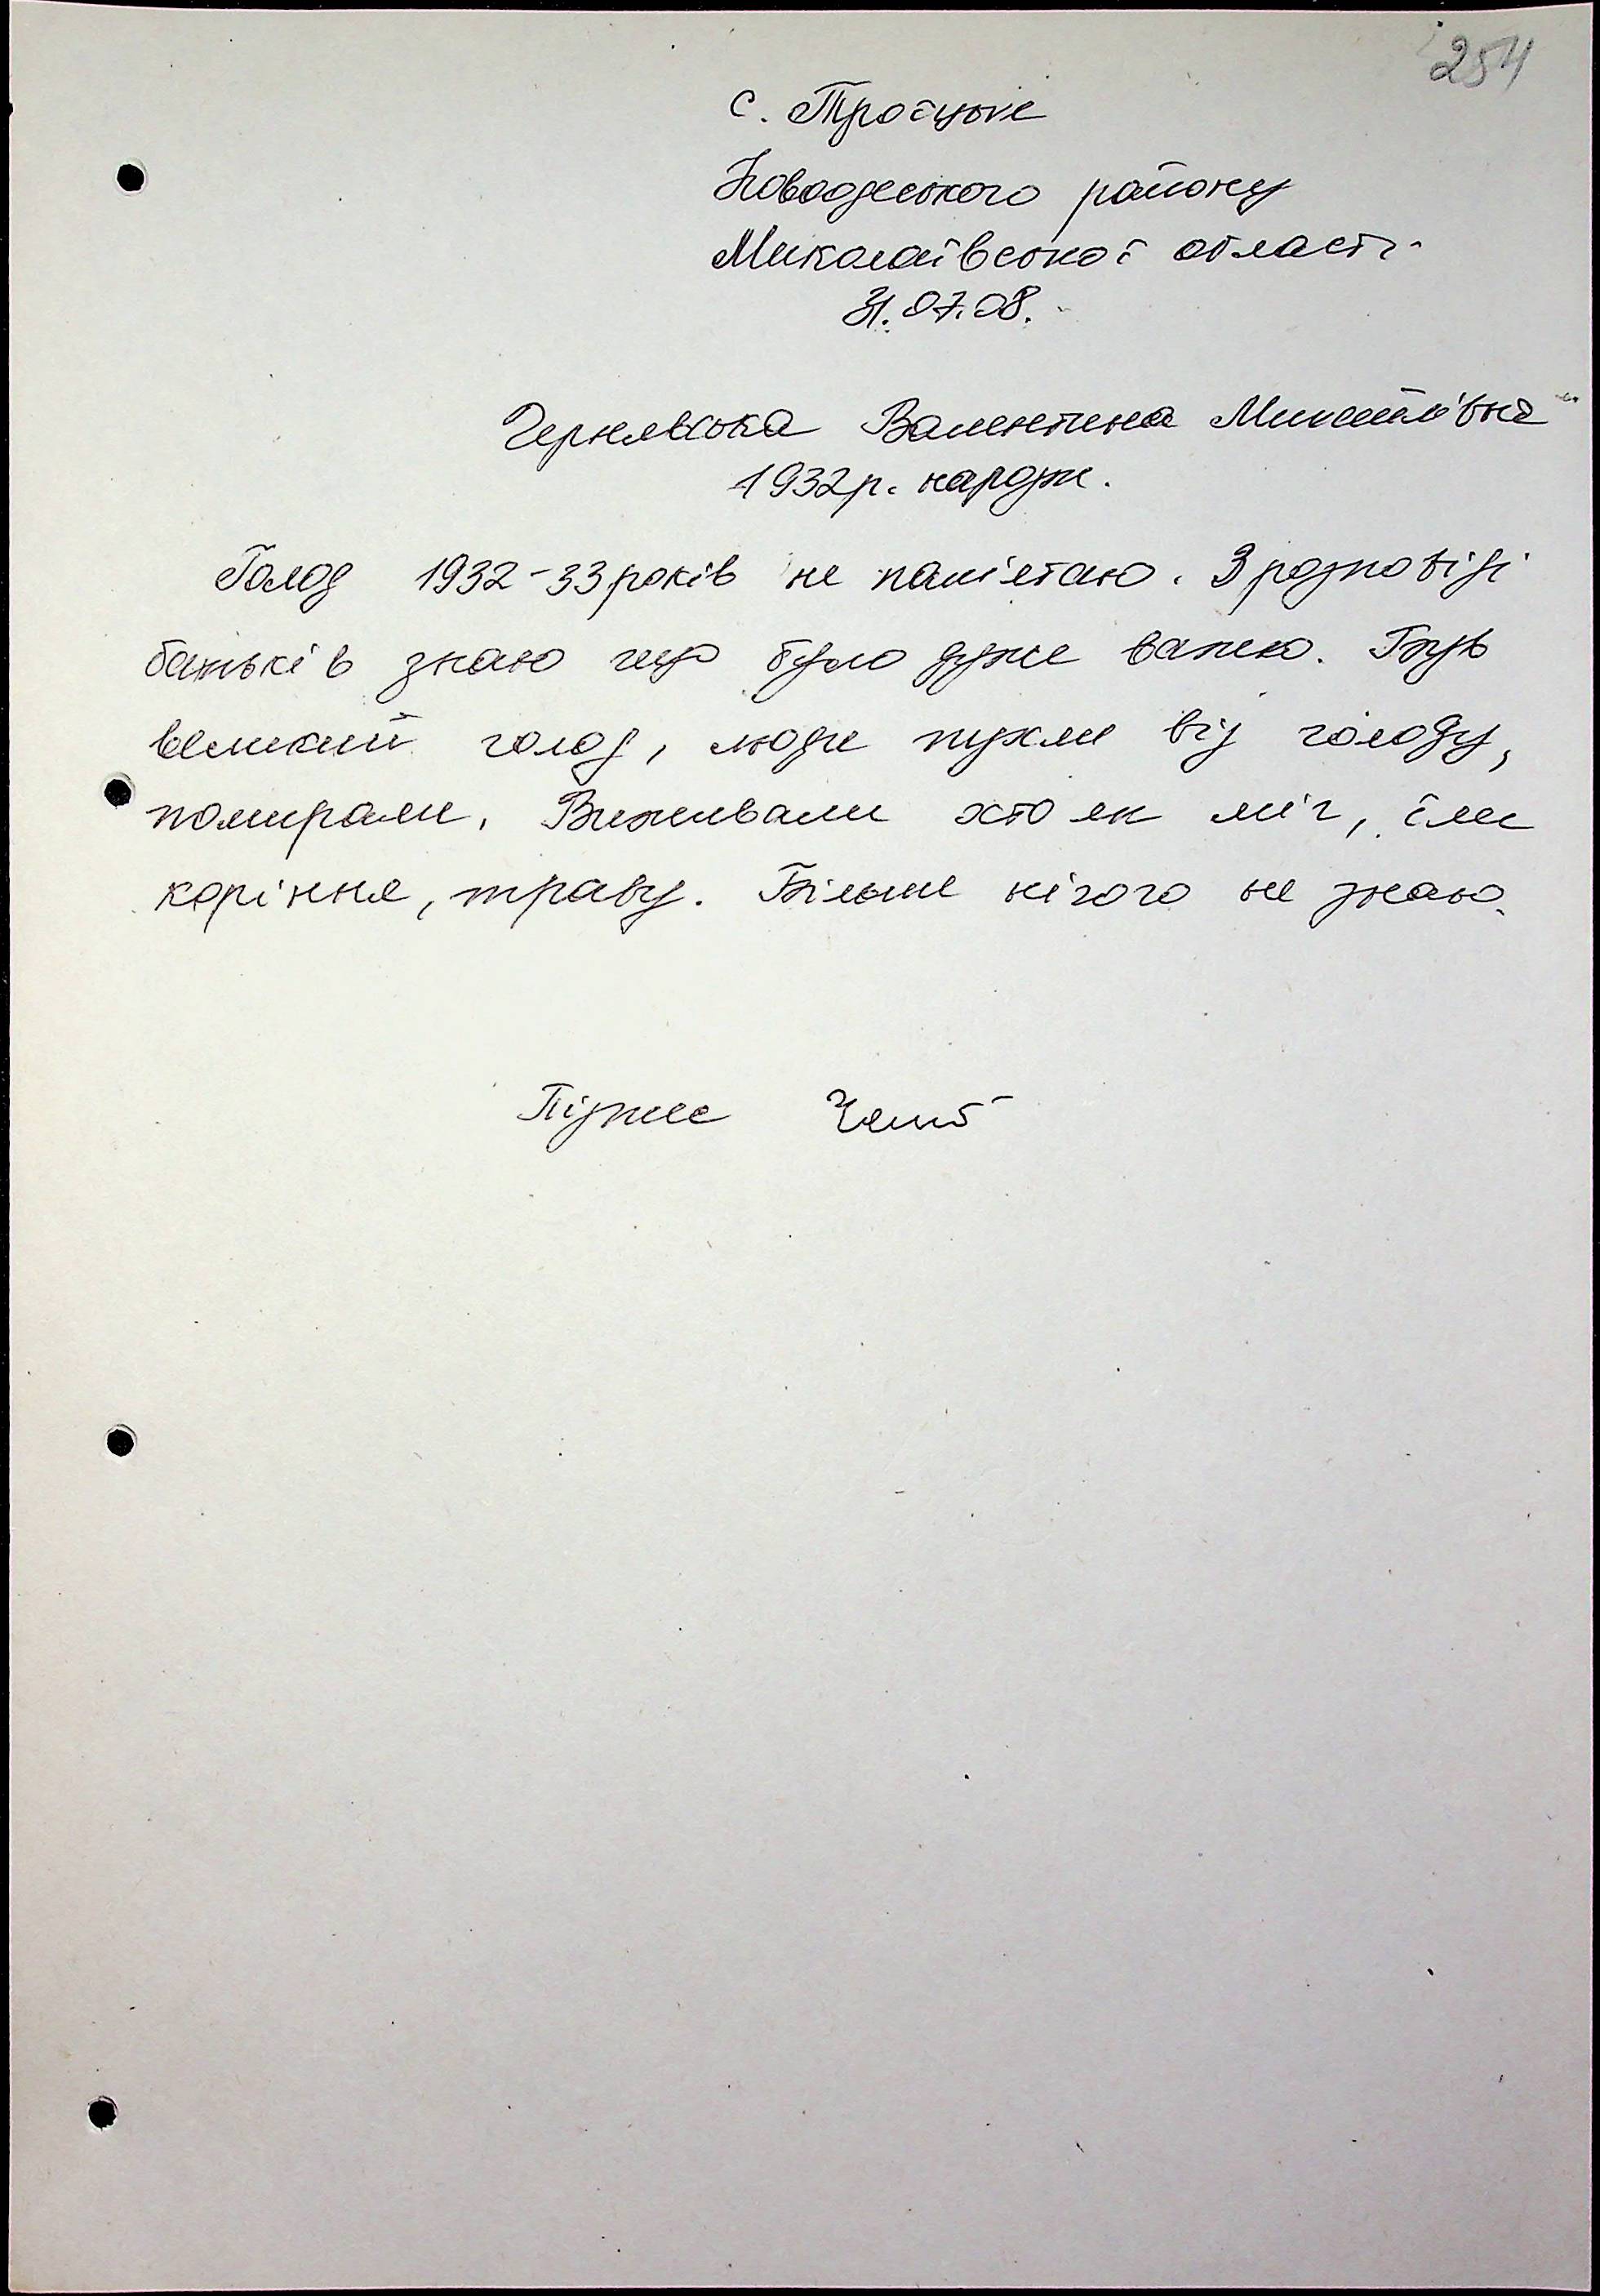 254
с. Троїцьке
Новоодеського району
Миколаївської області
31.07.08.
Чернявська Валентина Михайлівна
1932р. народж.
Голод 1932-33 років не пам'ятаю. З розповіді
батьків знаю що було дуже важко. Був
великий голод, люди пухли від голоду,
помирали. Виживали хто як міг, їли
коріння, траву. Більше нічого не знаю.
Підпис